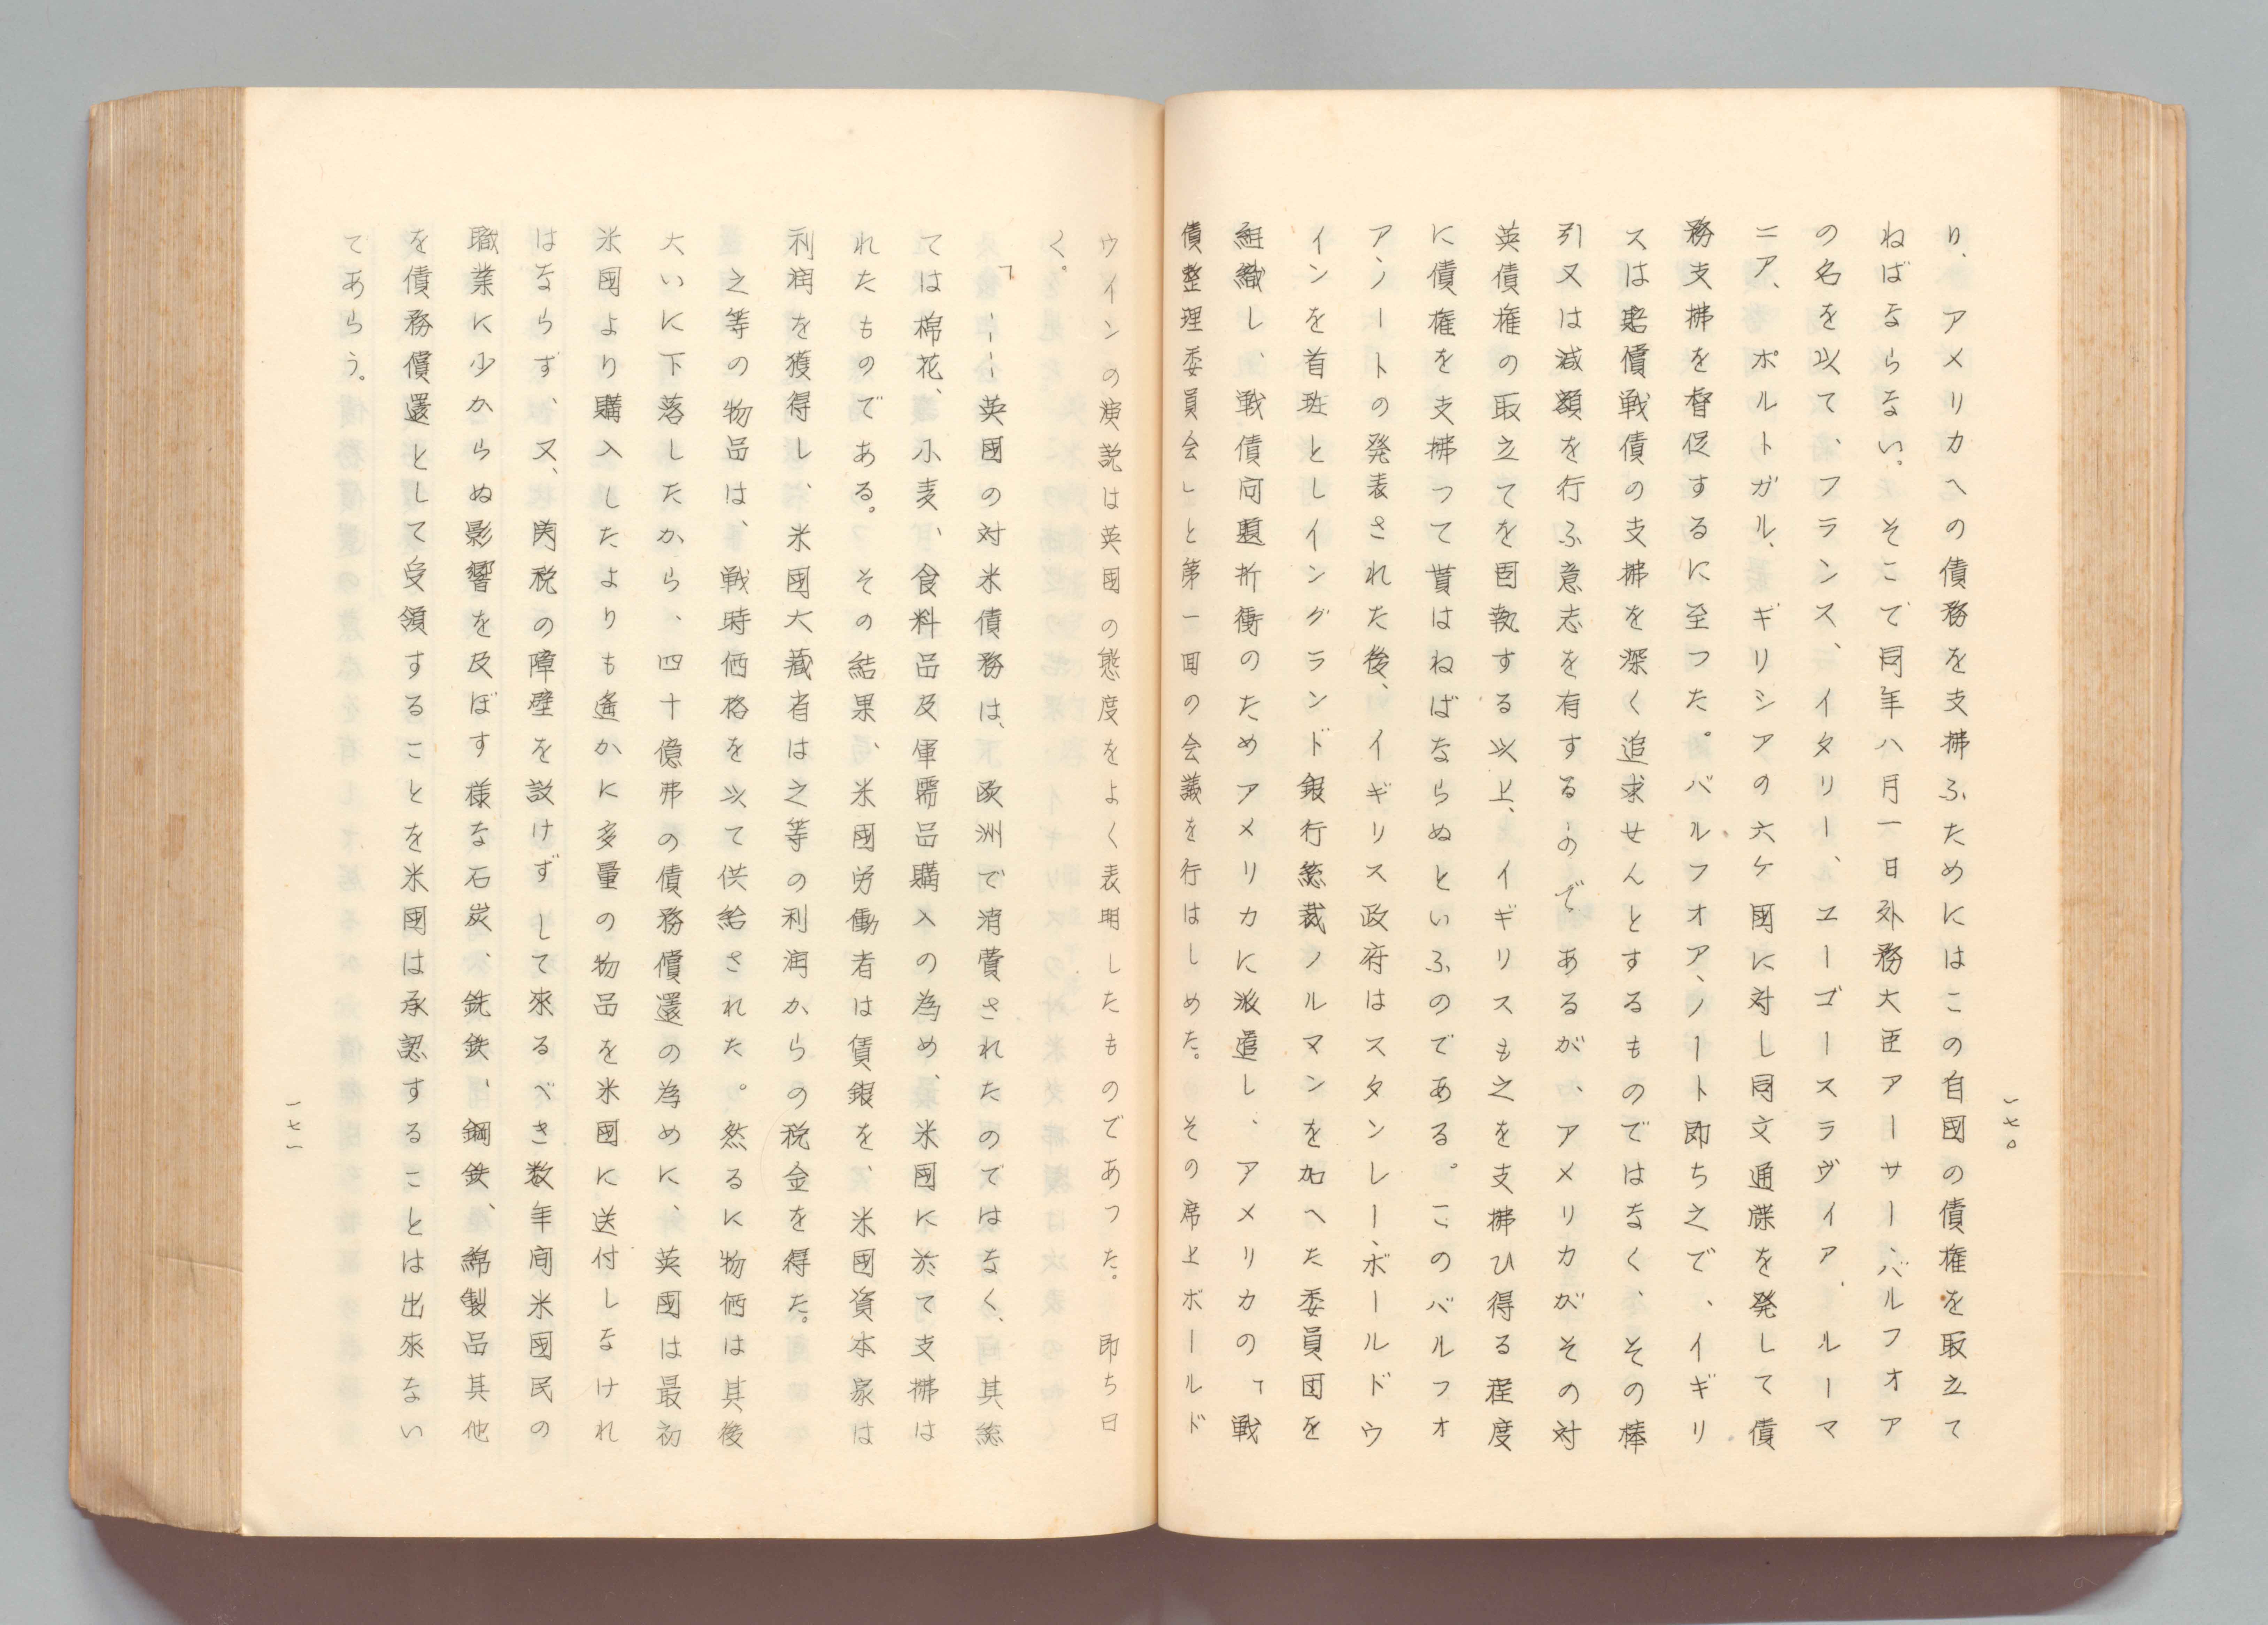 一七〇
り、アメリカへの債務を支拂ふためにはこの自國の債権を取立て
ねばならない。そこで同年八月一日外務大臣アーサー、バルフオア
の名を以て、フランス、イタリー、ユーゴースラヴイア、ルーマ
ニア、ポルトガル、ギリシアの六ケ國に対し同文通牒を発して債
務支拂を督促するに至つた。バルフオア、ノート即ち之で、イギリ
スは賠償戦債の支拂を深く追求せんとするものではなく、その棒
引又は減額を行ふ意志を有するのであるが、アメリカがその対
英債権の取立てを固執する以上、イギリスも之を支拂ひ得る程度
に債権を支拂つて貰はねばならぬといふのである。このバルフオ
アノートの発表された後、イギリス政府はスタンレー、ボールドウ
インを首班としイングランド銀行総裁ノルマンを加へた委員団を
組織し、戦債问題折衝のためアメリカに派遣し、アメリカの「戦
債整理委員会」と第一回の会議を行はしめた。その席上ボールド
ウインの演説は英国の態度をよく表明したものであつた。即ち曰
く。
「---英國の対米債務は、欧洲で消費されたのではなく、其総
ては棉花、小麦、食料品及軍需品購入の為め、米國に於て支拂は
れたものである。その結果、米國労働者は賃銀を、米國資本家は
利潤を獲得し、米國大藏省は之等の利潤からの税金を得た。
之等の物品は、戦時価格を以て供給された。然るに物価は其後
大いに下落したから、四十億弗の債務償還の為めに、英國は最初
米國より購入したよりも遙かに多量の物品を米國に送付しなけれ
はならず、又、関税の障壁を設けずして來るべき数年间米國民の
職業に少からぬ影響を及ぼす様な石炭、銑鉄、鋼鉄、綿製品其他
を債務償還として受領することを米國は承認することは出來ない
であらう。
一七一